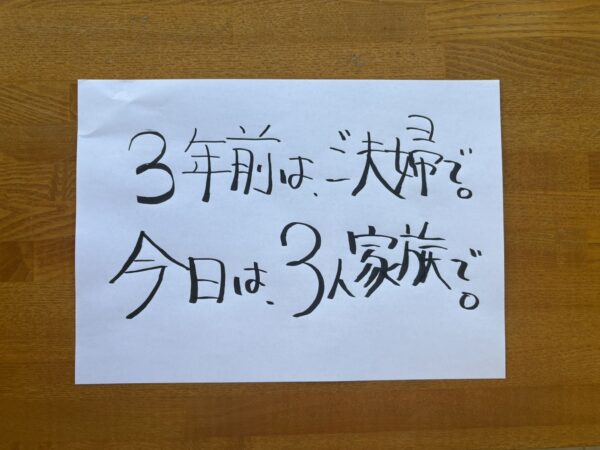 3年前は、ご夫婦で。
今日は、3人家族で。